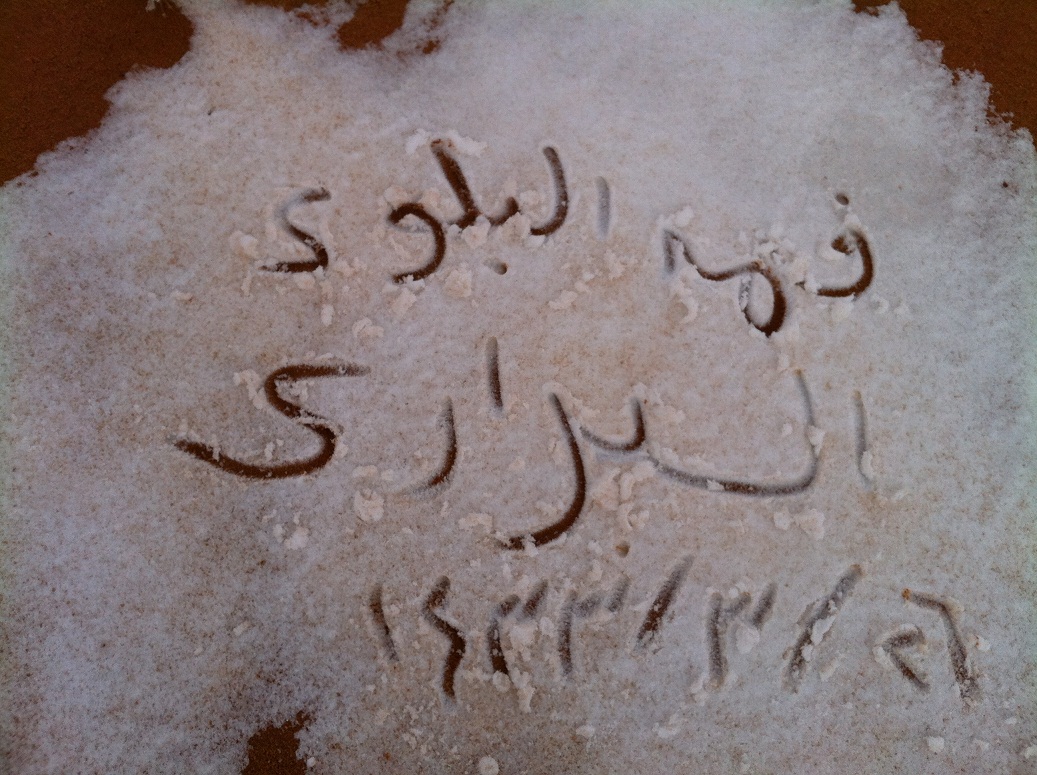 فهد البلوي
البراري
٢٦/٣/١٤٣٣